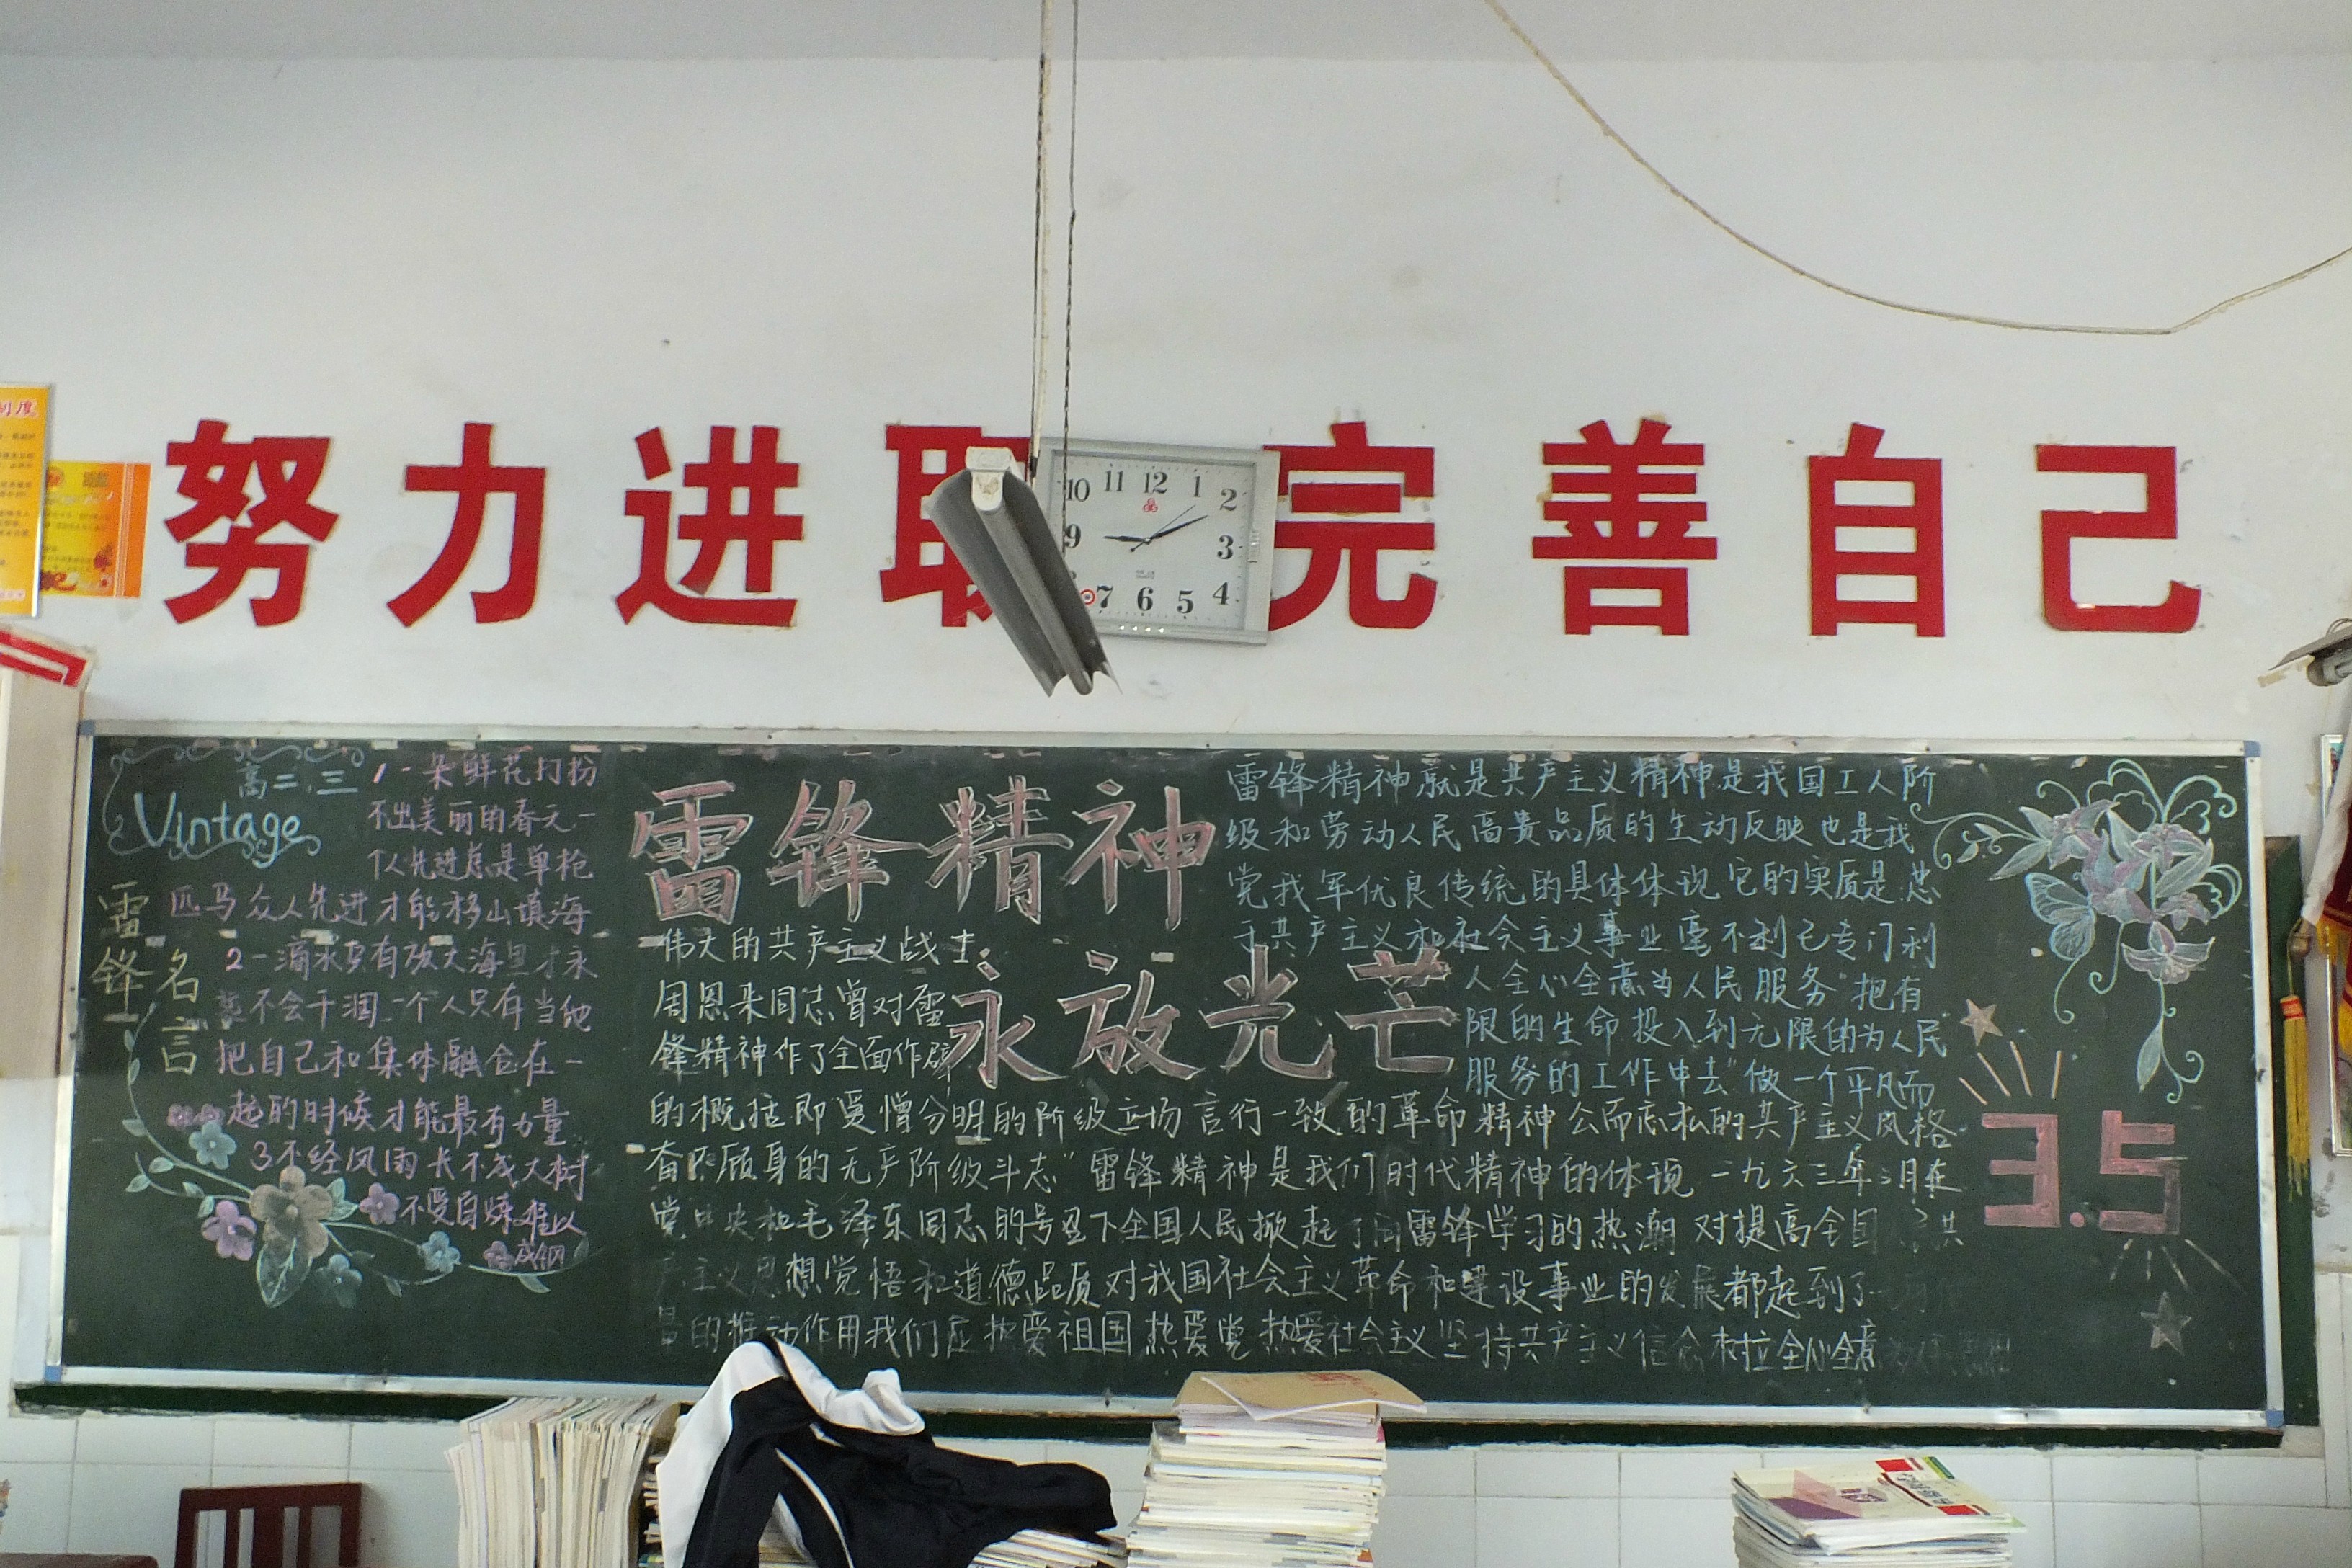 制度
努力进取 完善自己
10 11 12 1 2
9 3
7 6 5 4
高二.三
Vintage
雷锋
名言
1一朵鲜花打扮
不出美丽的春天.一
个人先进总是单枪
匹马众人先进才能移山填海
2一滴水只有放大海里才永
远不会干涸.一个人只有当他
把自己和集体融合在一
起的时候才能最有力量
3不经风雨长不成大树
不受百炼难以
成钢
雷锋精神
永放光芒
伟大的共产主义战士.
周恩来同志曾对雷
锋精神作了全面作辟
的概括即爱憎分明的阶级立场言行一致的革命精神公而忘私的共产主义风格
奋不顾身的无产阶级斗志"雷锋精神是我们时代精神的体现 一九六三年三月在
党中央和毛泽东同志的号召下全国人民掀起了向雷锋学习的热潮 对提高全国
主义思想觉悟和道德品质对我国社会主义革命和建设事业的发展都起到了
的推动作用我们应热爱祖国热爱党热爱社会主义坚持共产主义信念树立全心全意
雷锋精神就是共产主义精神是我国工人阶
级和劳动人民高贵品质的生动反映也是我
党我军优良传统的具体体现它的实质是忠
于共产主义和社会主义事业毫不利己专门利
人全心全意为人民服务"把有
限的生命投入到无限的为人民
服务的工作中去"做一个平凡而
3.5